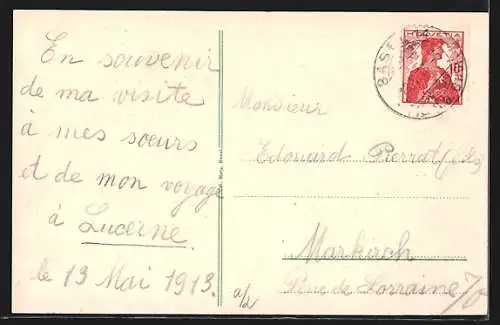 En souvenir
de ma visite
à mes sœurs
et de mon voyage
à Lucerne
le 13 Mai 1913.
HELVETIA
10
BASEL
Monsieur
Edouard Pierrat (fils)
Markirch
Rue de Lorraine
a/2